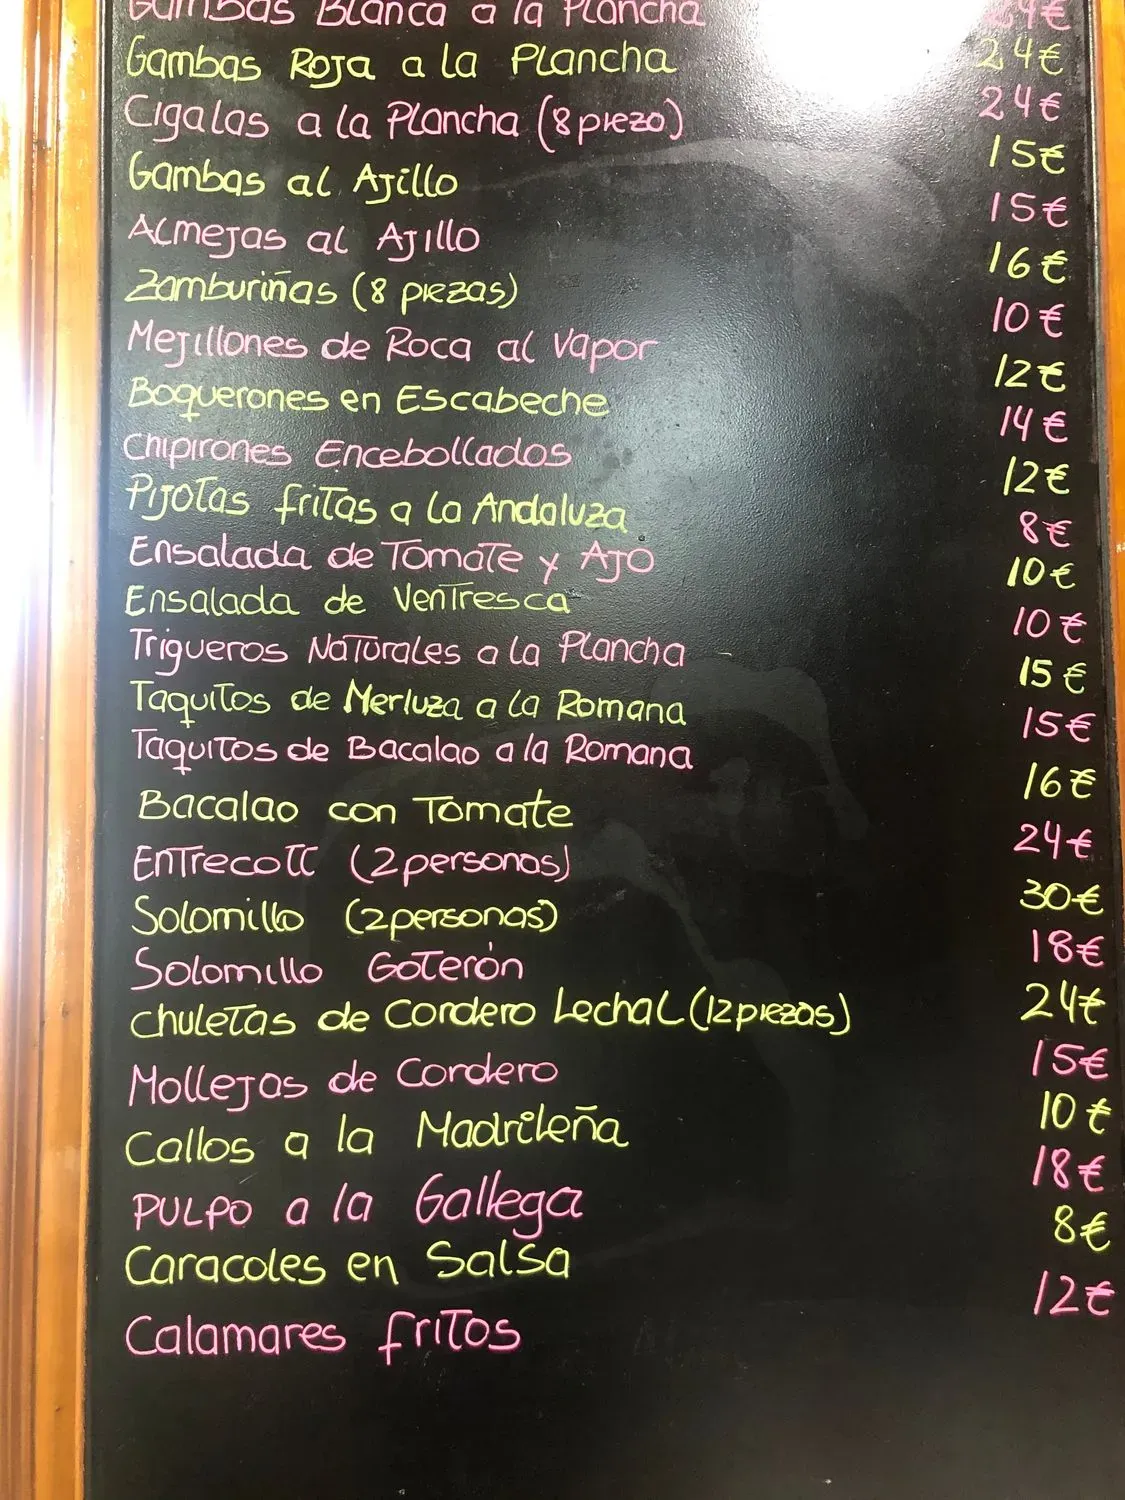 Gambas Blanca a la Plancha 24€
Gambas Roja a la Plancha 24€
Cigalas a la Plancha (8 piezo) 24€
Gambas al Ajillo 15€
Almejas al Ajillo 15€
Zamburiñas (8 piezas) 16€
Mejillones de Roca al Vapor 10€
Boquerones en Escabeche 12€
Chipirones Encebollados 14€
Pijotas fritas a la Andaluza 12€
Ensalada de Tomate y Ajo 8€
Ensalada de Ventresca 10€
Trigueros Naturales a la Plancha 10€
Taquitos de Merluza a la Romana 15€
Taquitos de Bacalao a la Romana 15€
Bacalao con Tomate 16€
Entrecott (2 personas) 24€
Solomillo (2 personas) 30€
Solomillo Goterón 18€
Chuletas de Cordero Lechal (12 piezas) 24€
Mollejas de Cordero 15€
Callos a la Madrileña 10€
PULPO a la Gallega 18€
Caracoles en Salsa 8€
Calamares fritos 12€